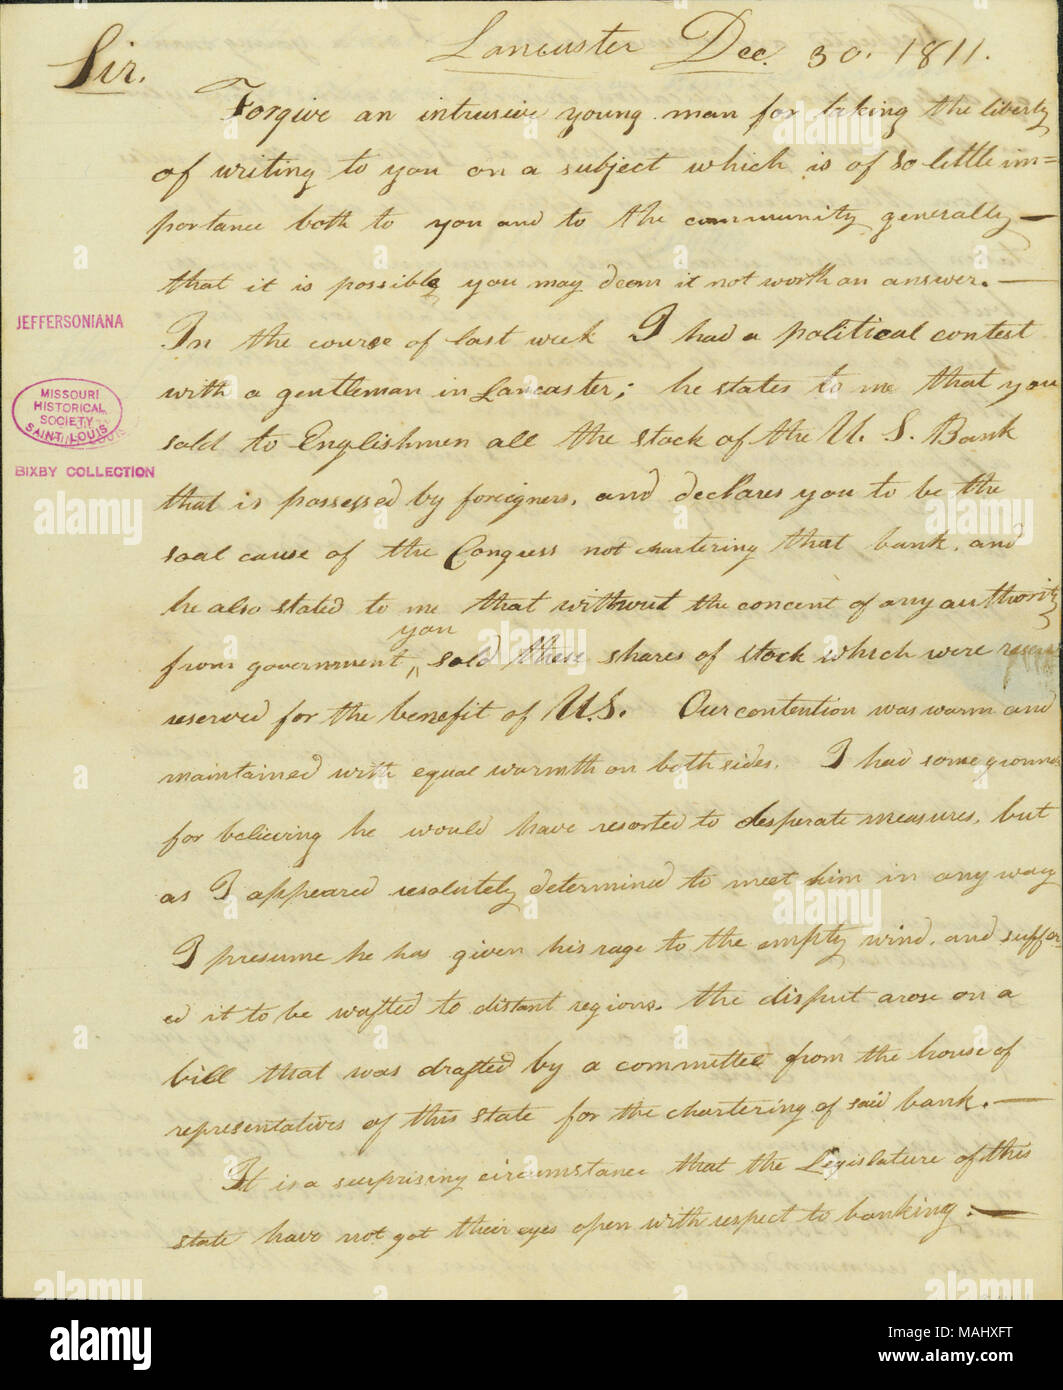 Lancaster Dec. 30. 1811.
Sir.
Forgive an intrusive young man for taking the liberty
of writing to you on a subject which is of so little im=
portance both to you and to the community generally—
that it is possible you may deem it not worth an answer.—
In the course of last week I had a political contest
with a gentleman in Lancaster; he states to me that you
sold to Englishmen all the stock of the U. S. Bank
that is possessed by foreigners, and declares you to be the
soal cause of the Congress not chartering that bank, and
he also stated to me that without the concent of any authority
you
from government ^ sold these shares of stock which were
reserved for the benefit of U.S. Our contention was warm and
maintained with equal warmth on both sides. I had some grounds
for believing he would have resorted to desperate measures, but
as I appeared resolutely determined to meet him in any way
I presume he has given his rage to the empty wind, and suffer-
ed it to be wafted to distant regions. the disput arose on a
bill that was drafted by a committee from the house of
representatives of this state for the chartering of said bank.—
It is a surprising circumstance that the Legislature of this
state have not got their eyes open with respect to banking:—
JEFFERSONIANA
MISSOURI
HISTORICAL
SOCIETY
SAINT LOUIS
BIXBY COLLECTION
alamy
Image ID: MAHXFT
www.alamy.com